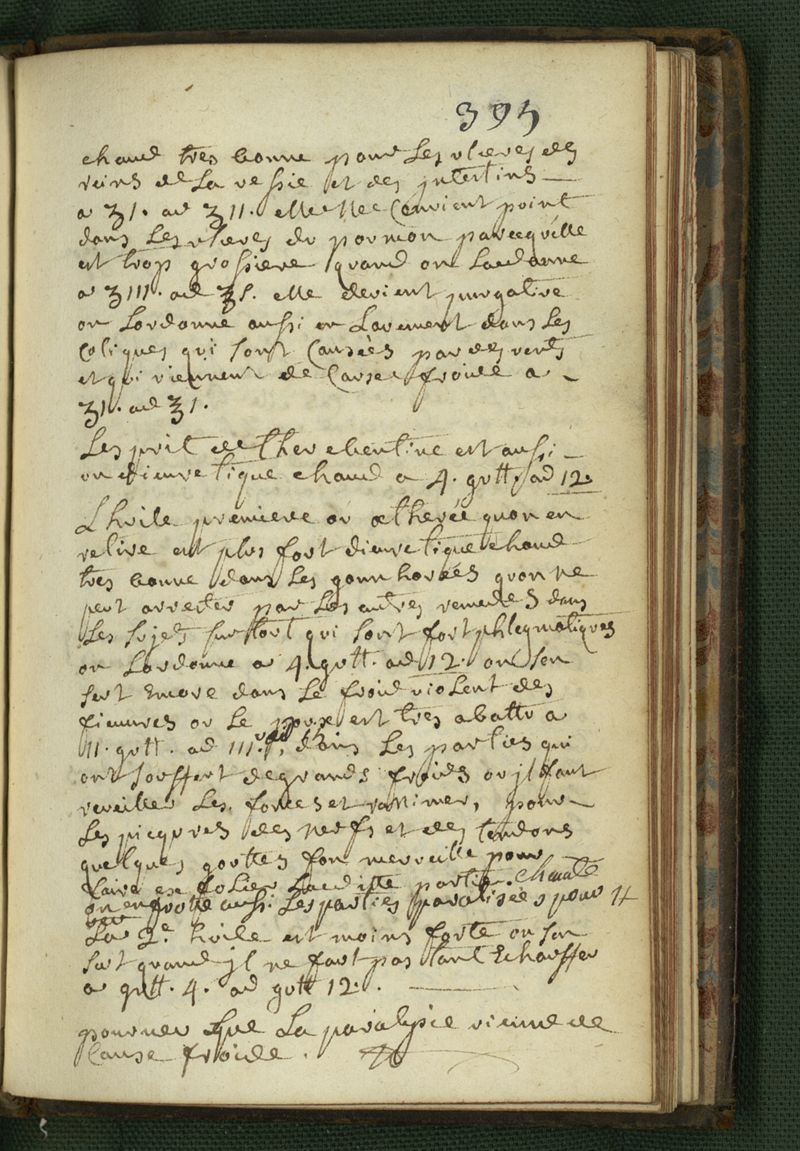 395
chaud tres bonne pour Les vlceres des
reins de La vessie et des jntestins —
a ʒ1. ad ʒ11. elle Ne Convient point
dans Les vlceres du pormon parcequ'elle
est trop grossiere quand on La donne
a ʒ111. ad ʒs. elle devient purgative
on Lordonne aussi en Lavement dans Les
Coliques qui sont Causées par des vents
et qui viennent de Cause froide a —
ʒ1. ad ʒ1.
Lesprit de therebentine est aussi —
un dieuretique chaud a 4. gutt. ad 12.
Lhuile premiere ou œtherée quon en
retire est plus fort dieuretique chaud
tres bonne dans Les gonnhorées quon ne
peut arreter par Les autres remedes dans
Les sujets surtout qui sont fort phlegmatiques
on Lordonne a 4. gutt. ad 12. on sen
sert Encore dans Le froid violent des
fieuvres ou Le poux est tres abattu a
11. gutt. ad 111. dans Les parties qui
ont souffert de grands froids ou jl faut
reveiller Les forces et ranimer, pour —
Les picqures des Nerfs et des tendons
quelques gouttes font merveille pour
faire exfolier Laditte partie. chaude
on en frotte aussi Les parties paralisées pour #
La 2.e huile est moins forte on sen
sert quand jl ne faut pas tant Echauffer
a gutt. 4. ad gutt 12. —
pourveu que La paralysie vienne de
Cause froide. #